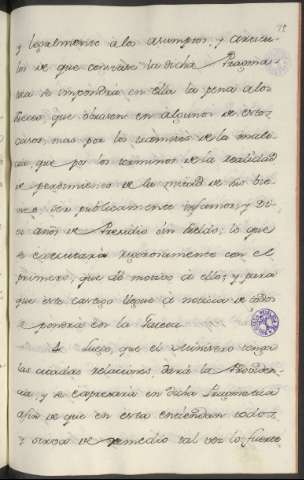 y legalmente a los asumptos, y articu-
los de que constare la dicha Pragma-
tica se impondrá en ella la pena a los
que en alguno de estos
casos, mas por los terminos de la
que por los terminos de la realidad
de perdimiento de la mitad de sus bie-
nes, ser publicamente infames, y Di-
ez años de Presidio sin sueldo; lo que
se executará rigorosamente con el
primero, que dé motivo à ello; y para
que este castigo llegue à noticia de todos
se pondrá en la Gaceta.
Luego, que el Ministro tenga
las citadas relaciones, dará la Providen-
cia, y se expresará en dicha Pragmatica
afin de que en esta entiendan todos,
y sirva de remedio tal vez lo fuerte